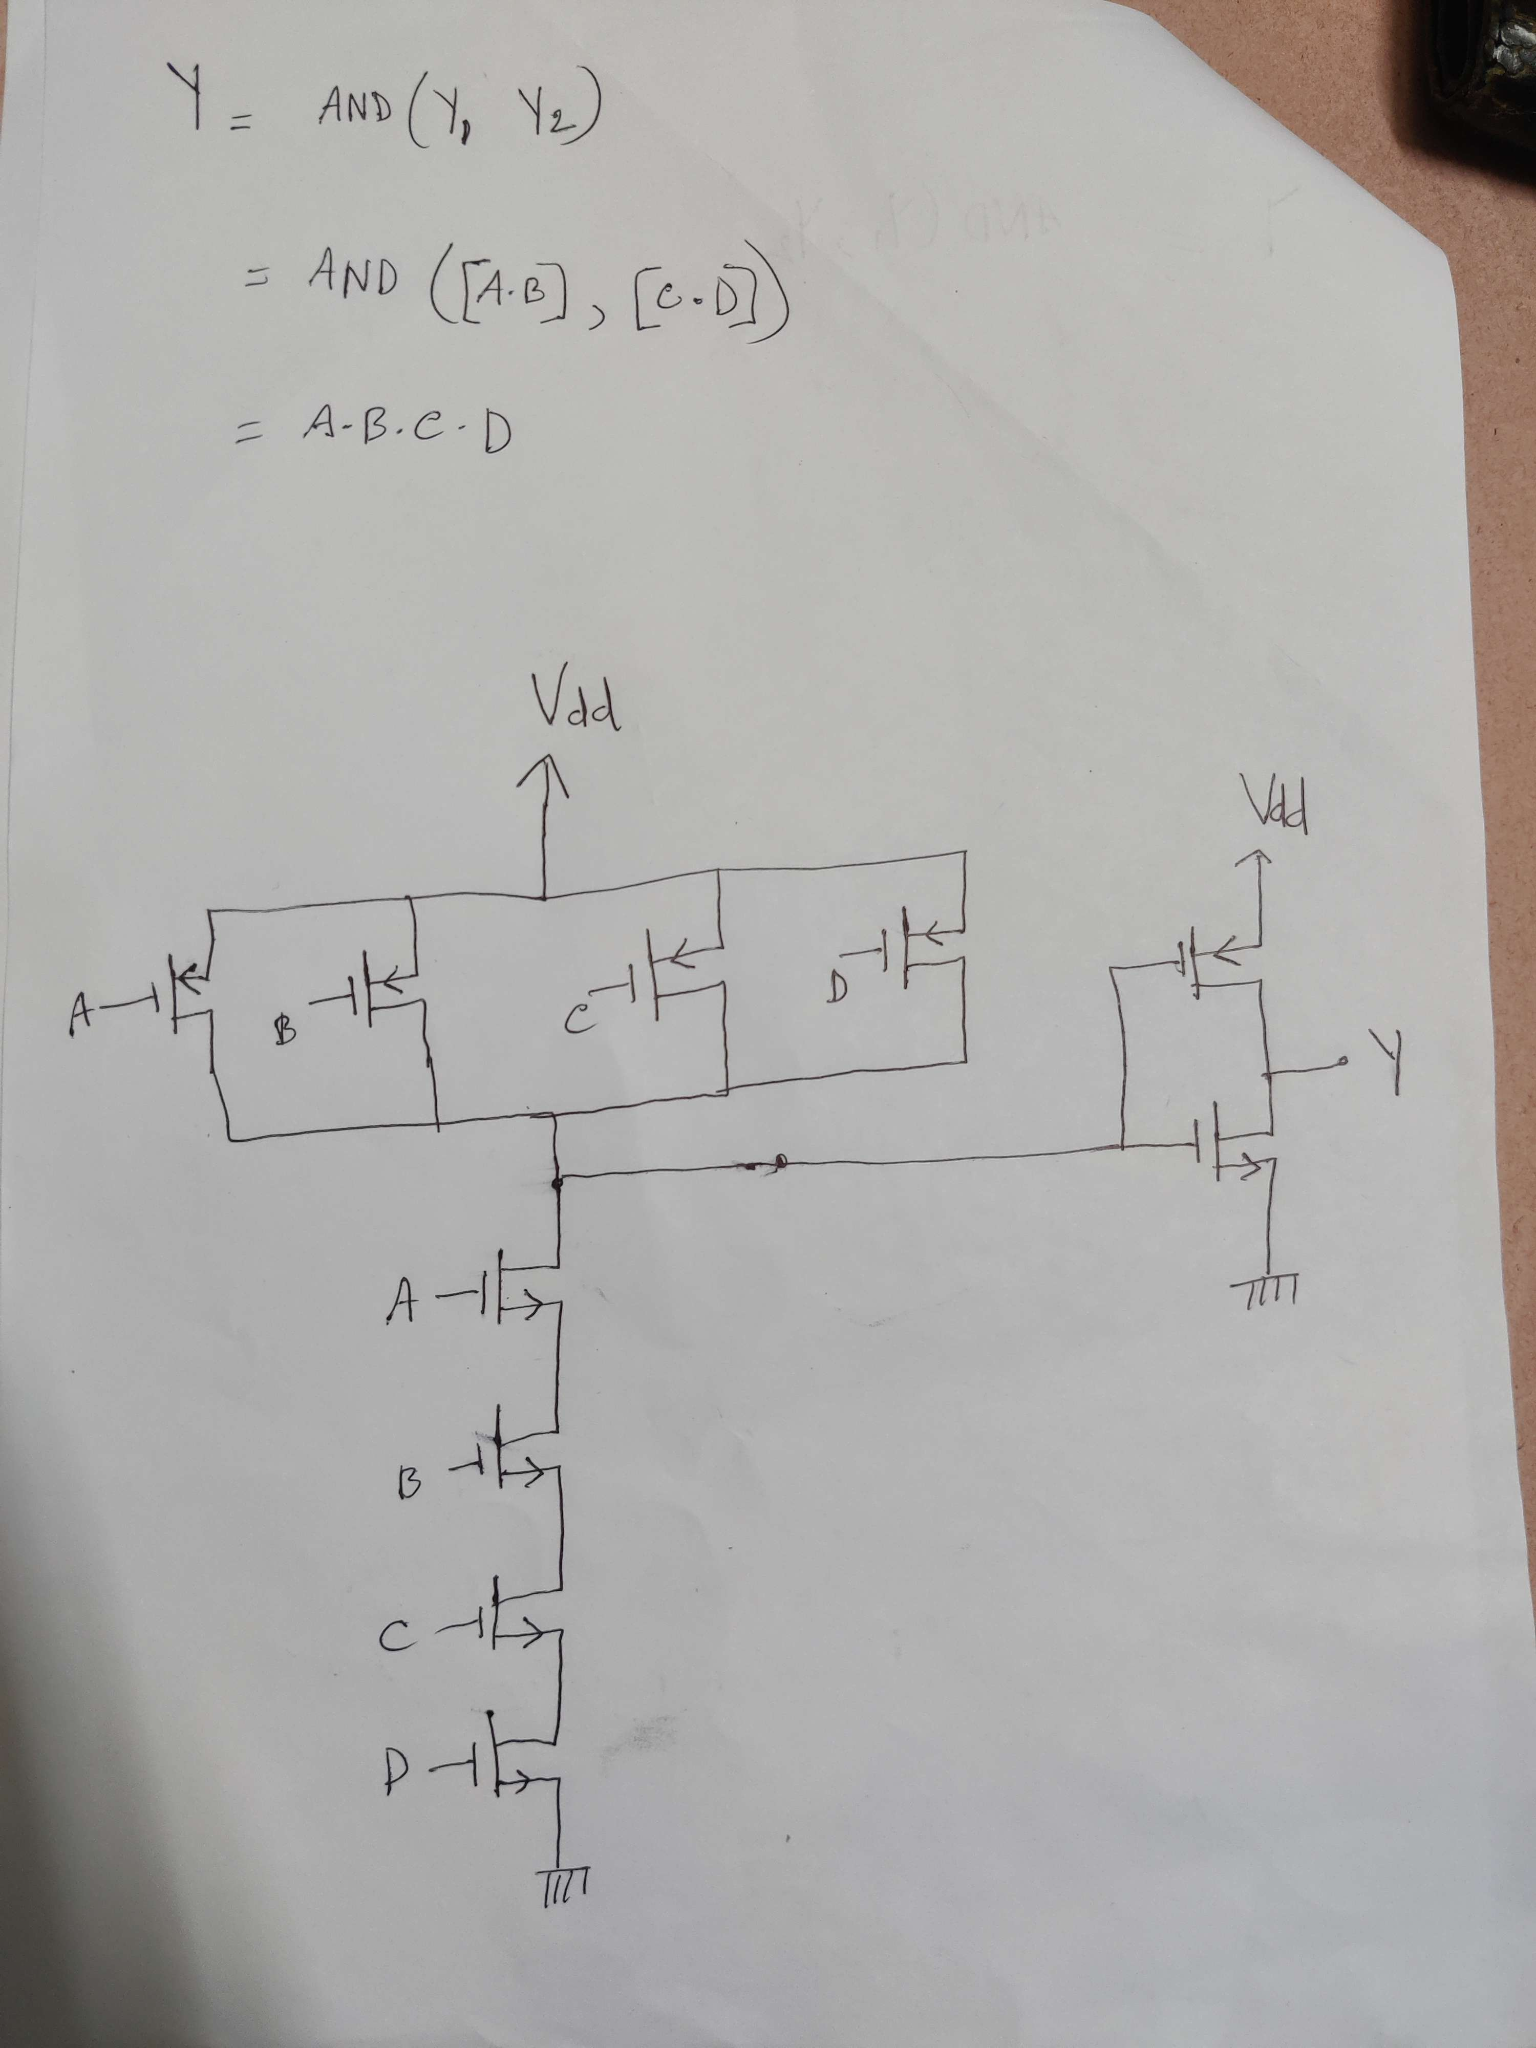 Y = AND (Y1 Y2)
= AND ([A.B], [C.D])
= A.B.C.D
Vdd
Vdd
A
B
C
D
Y
A
B
C
D